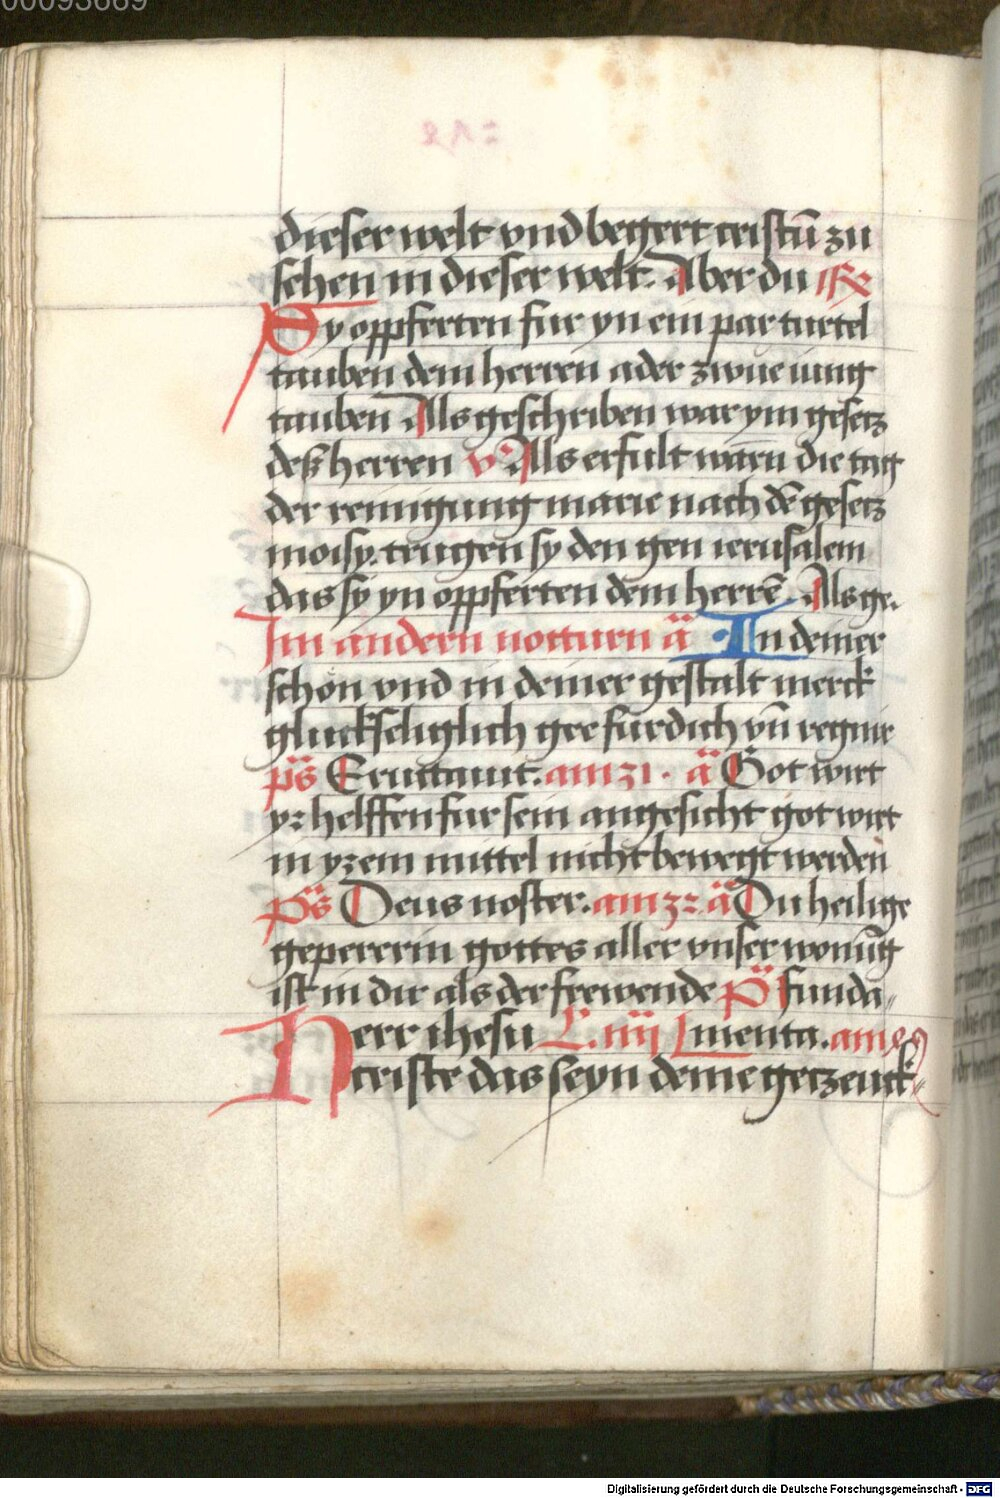 00093669
dieser welt vnd begert cristū zu
sehen in dieser welt. Aber du ℟
Sy oppferten fur yn ein par turtel
tauben dem herren ader zwue iung
tauben Als geschriben war ym gesetz
deß herren v̓ Als erfult warn̄ die tag
der reinigung marie nach dē gesetz
moisy. trugen sy den gen ierusalem
das sy yn oppferten dem herrē. Als ge.
Im andern notturn a͏̈ In deiner
schon vnd in deiner gestalt merck
gluckseliglich gee fur dich vn̄ regnir
ps̈ Eructauit. am 31. a͏̈ Got wirt
yr helffen fur sein angesicht got wirt
in yrem mittel nicht bewegt werden
ps̈ Deus noster. am 32 a͏̈ Du heilige
gepererin gottes aller vnser wonūg
ist in dir als der frewende p̈s funda„
Herr ihesu L. iiij menta. am
criste das seyn deine getzeuck„
Digitalisierung gefördert durch die Deutsche Forschungsgemeinschaft - DFG